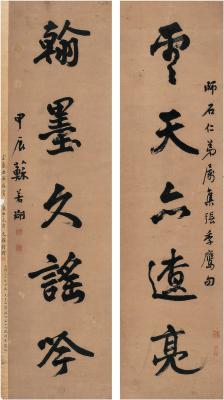 師石仁弟屬集張季鷹句
雲天亦遼亮
翰墨久謠吟
甲辰蘇若瑚